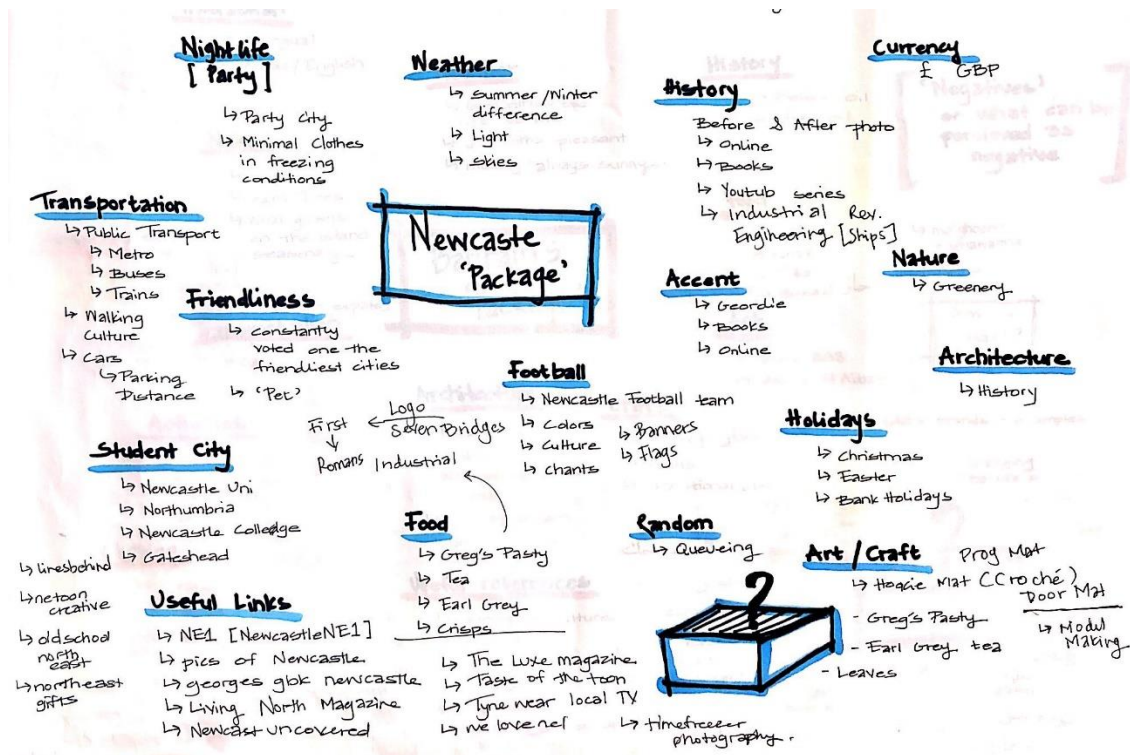 Nightlife
[Party]
↳ Party city
↳ Minimal clothes
in freezing
conditions
Weather
↳ Summer/Winter
difference
↳ Light
↳ skies
History
Before & After photo
↳ Online
↳ Books
↳ Youtub series
↳ Industrial Rev.
Engineering [ships]
Currency
£ GBP
Transportation
↳ Public Transport
↳ Metro
↳ Buses
↳ Trains
↳ Walking
culture
↳ Cars
↳ Parking
Distance
Newcaste
'Package'
Friendliness
↳ constantly
voted one the
friendliest cities
↳ 'Pet'
Accent
↳ Geordie
↳ Books
↳ Online
Nature
↳ Greenery
Architecture
↳ History
Football
↳ Newcastle Football team
↳ Colors
↳ Culture
↳ chants
↳ Banners
↳ Flags
Logo
Seven Bridges
First
Romans Industrial
Holidays
↳ Christmas
↳ Easter
↳ Bank Holidays
Student City
↳ Newcastle Uni
↳ Northumbria
↳ Newcastle Colledge
↳ Gateshead
Food
↳ Greg's Pasty
↳ Tea
↳ Earl Grey
↳ Crisps
Random
↳ Queueing
?
Art/Craft
Prog Mat
(Croché)
Door Mat
↳ Modul
Making
- Greg's Pasty
- Earl Grey tea
- Leaves
↳ linesbehind
↳ netoon
creative
↳ oldschool
north
east
↳ northeast
gifts
Useful Links
↳ NE1 [NewcastleNE1]
↳ pics of Newcastle
↳ georges gbk newcastle
↳ Living North Magazine
↳ Newcast uncovered
↳ The Luxe magazine
↳ Taste of the toon
↳ Tyne wear local TX
↳ timefreezer
photography.